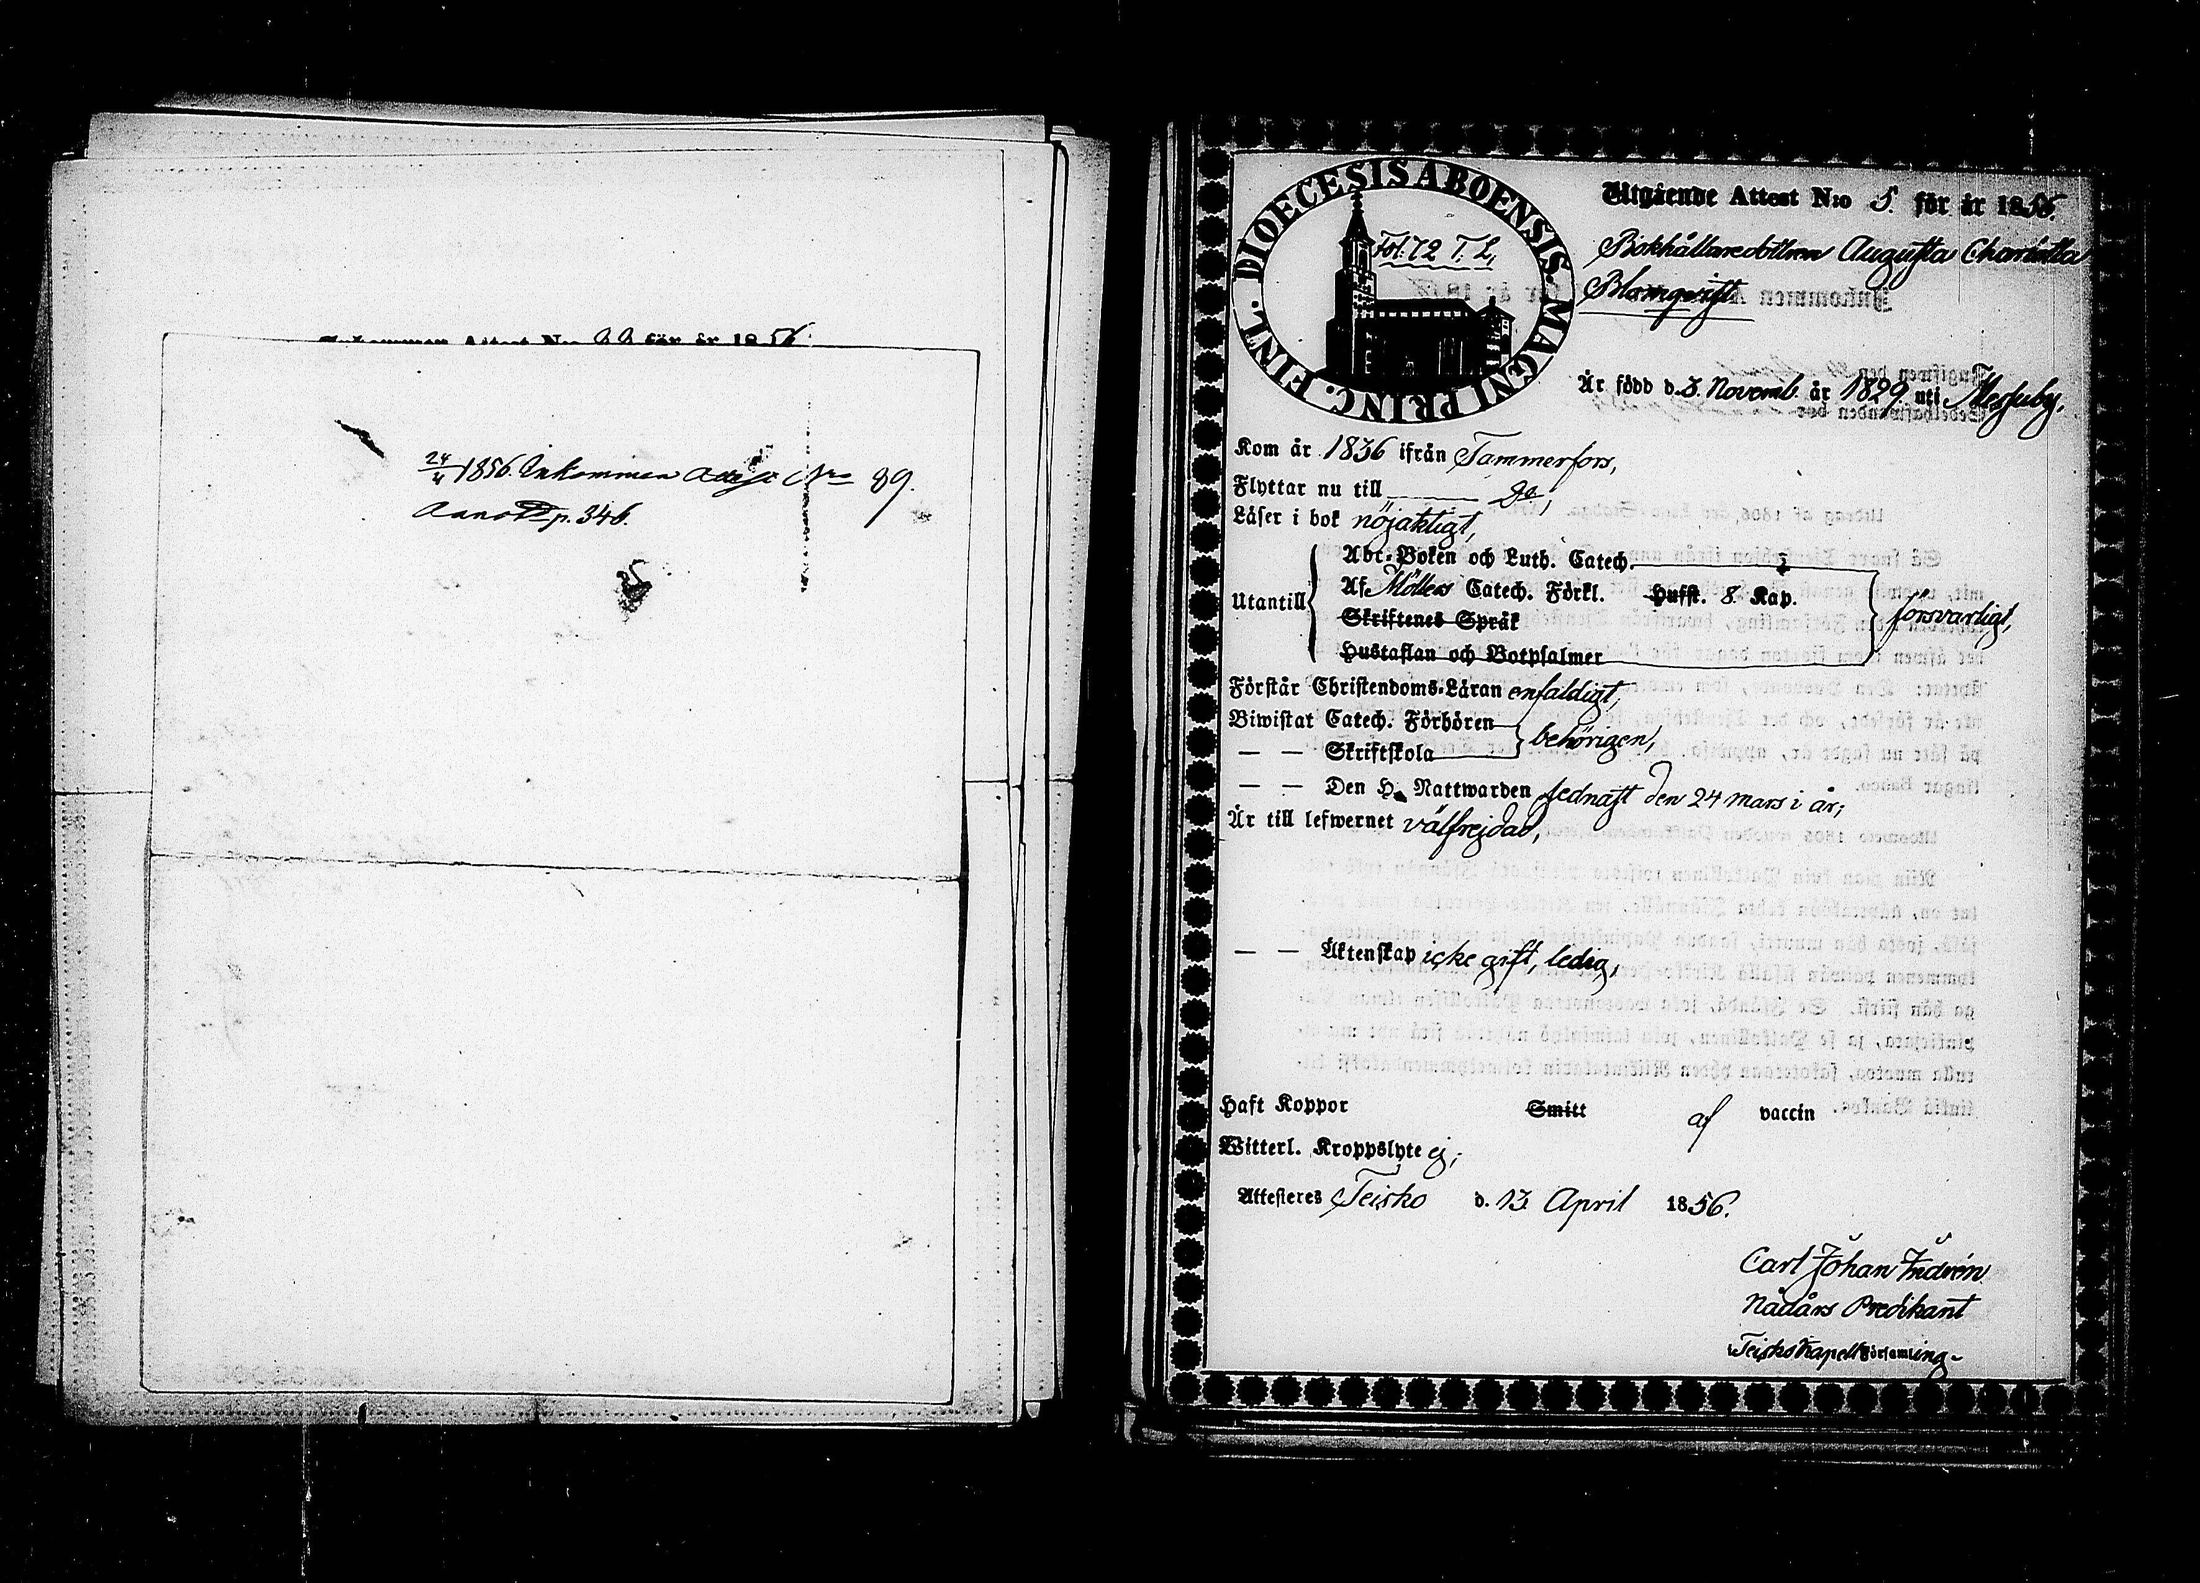 Inkommen Attest N:o för år 1856.
24/4 1856. Inkommen Attest Nro 89.
p. 346.
DIOECESIS ABOENSIS. MAGNI PRINC. FINL.
Fol. 72 T. L,
Utgående Attest N:o 5. för år 1856.
Bokhållaredottren Augusta Charlotta
Blomqvist
Är född d. 3. Novemb. år 1829 uti Messuby.
Kom år 1836 ifrån Tammerfors,
Flyttar nu till Do,
Läser i bok nöjaktigt,
Abc-Boken och Luth. Catech.
Utantill
Af Möllers Catech. Förkl. Hufst. 8. Kap.
försvarligt,
Skriftenes Språk
Hustaflan och Botpsalmer
Förstår Christendoms-Läran enfaldigt,
Biwistat Catech. Förhören
behörigen,
— — Skriftskola
— — Den H. Nattwarden sednast den 24 mars i år;
Är till lefwernet välfrejdad,
— — Äktenskap icke gift, ledig,
Haft Koppor Smitt af vaccin
Witterl. Kroppslyte ej;
Attesteres Teisko d. 13. April 1856.
Carl Johan Indrén
Nådårs Predikant
Teisko Kapell Församling